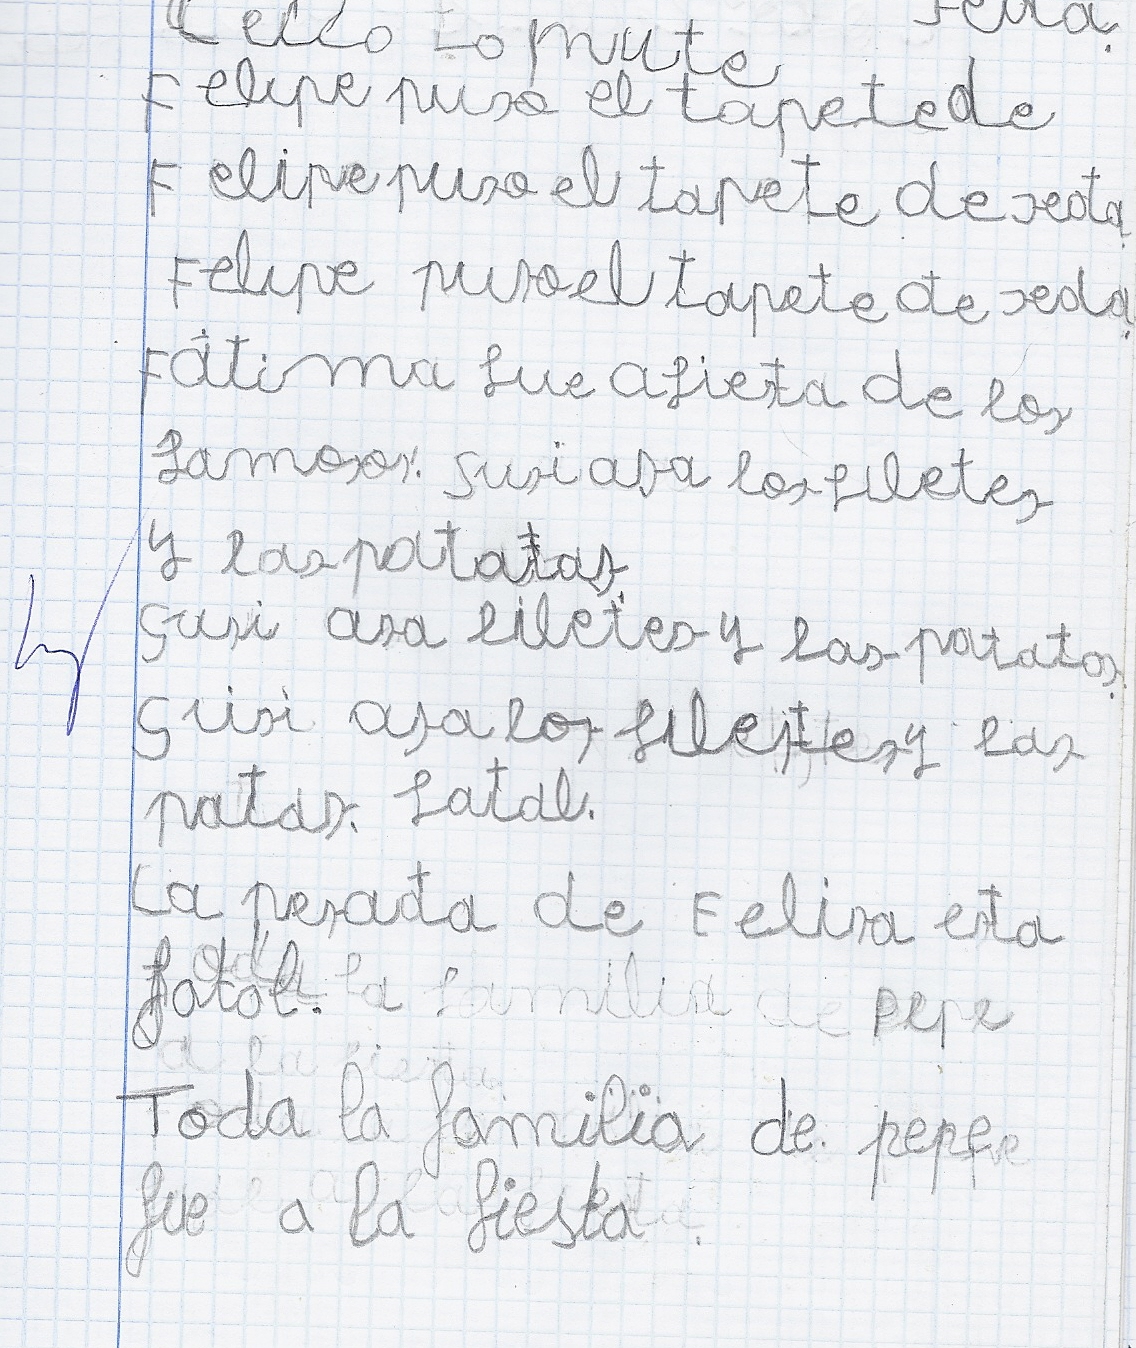 seda.
Felipe puso el tapete de
Felipe puso el tapete de seda
Felipe puso el tapete de seda.
Fátima fue a fieta de los
famosos. Susi asa los filetes
y las patatas.
Susi asa filetes y las patatas.
Susi asa los filestes y las
patas. fatal.
La pesada de Felisa esta
fatal. la familia de pepe
a la fiesta.
Toda la familia de pepe
fue a la fiesta.